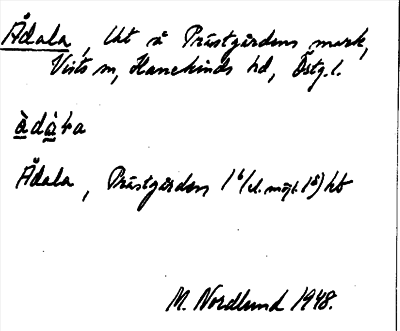 Ådala, Lht å Prästgårdens mark,
Vists sn, Hanekinds hd, Östg. l.
àdàɫa
Ådala, Prästgården 1⁶ (el. möjl. 1⁵) hb
M. Nordlund 1948.